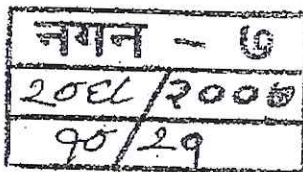 नगन - ७
२०६८/२००७
१०/२१